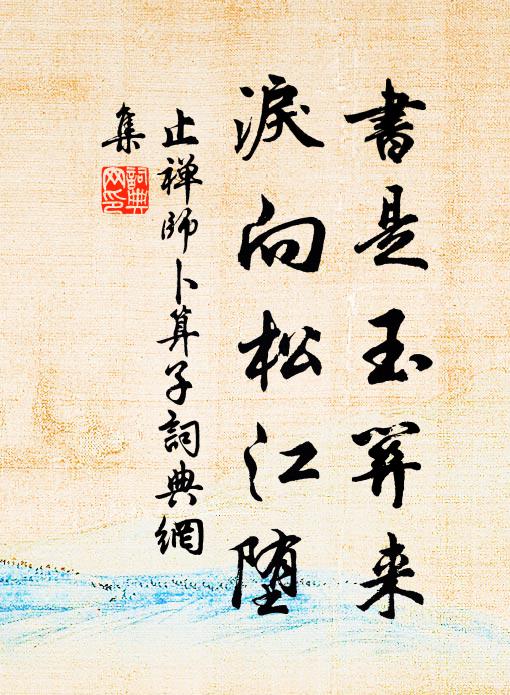 書是玉關来
淚向松江堕
止禅師卜算子詞典網
集
詞典网印